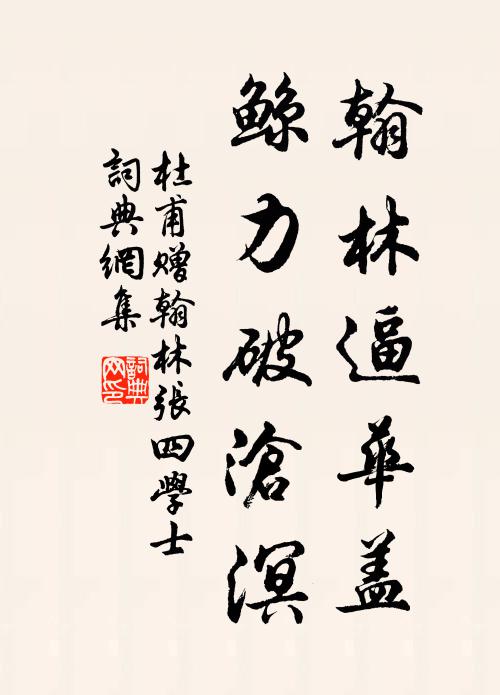 翰林逼華蓋
鯨力破滄溟
杜甫贈翰林張四學士
詞典網集
詞典网印